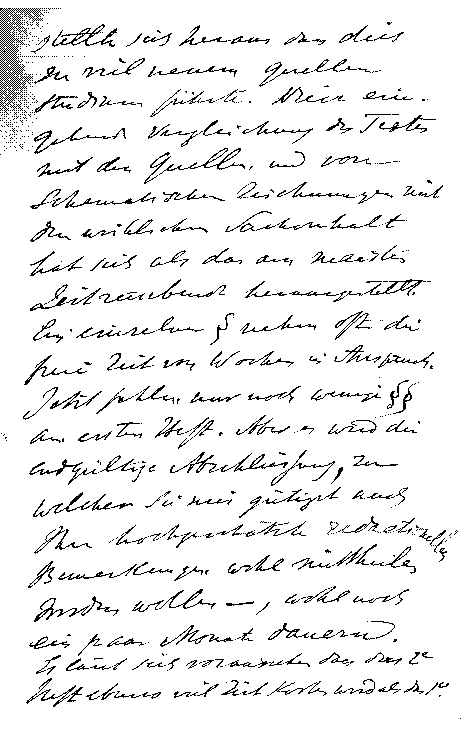 stellte sich heraus dass dies
zu viel neuem Quellen
studium führte. Diese ein-
gehende Vergleichung des Textes
mit den Quellen, und von
Schematischen Zeichnungen mit
dem wirklichen Sachverhalt
hat sich als das am meisten
Zeitraubende herausgestellt.
Ein einzelner § nahm oft die
freie Zeit von Wochen in Anspruch.
Jetzt fehlen nur noch wenige §§
am ersten Heft. Aber es wird die
endgültige Abschliessung, zu
welcher Sie mir gütigst auch
Ihre hochgeschätzte redactionellen
Bemerkungen wohl mittheilen
werden wollen —, wohl noch
ein paar Monate dauern.
Es lässt sich voraussehen dass das 2te
Heft ebenso viel Zeit kosten wird als das 1te.